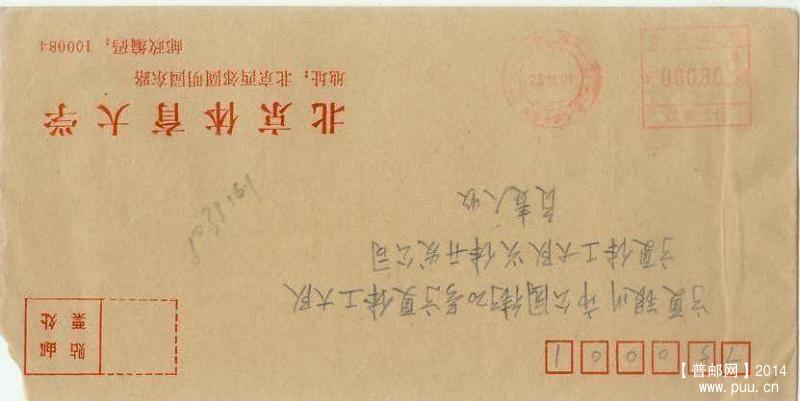 750001
宁夏银川市公园街20号宁夏体工大队
宁夏体工大队兴体开发公司
负责人收
贴邮
票处
北京体育大学
地址：北京西郊圆明园东路
邮政编码：100084
00080
【普邮网】2014
www.puu.cn